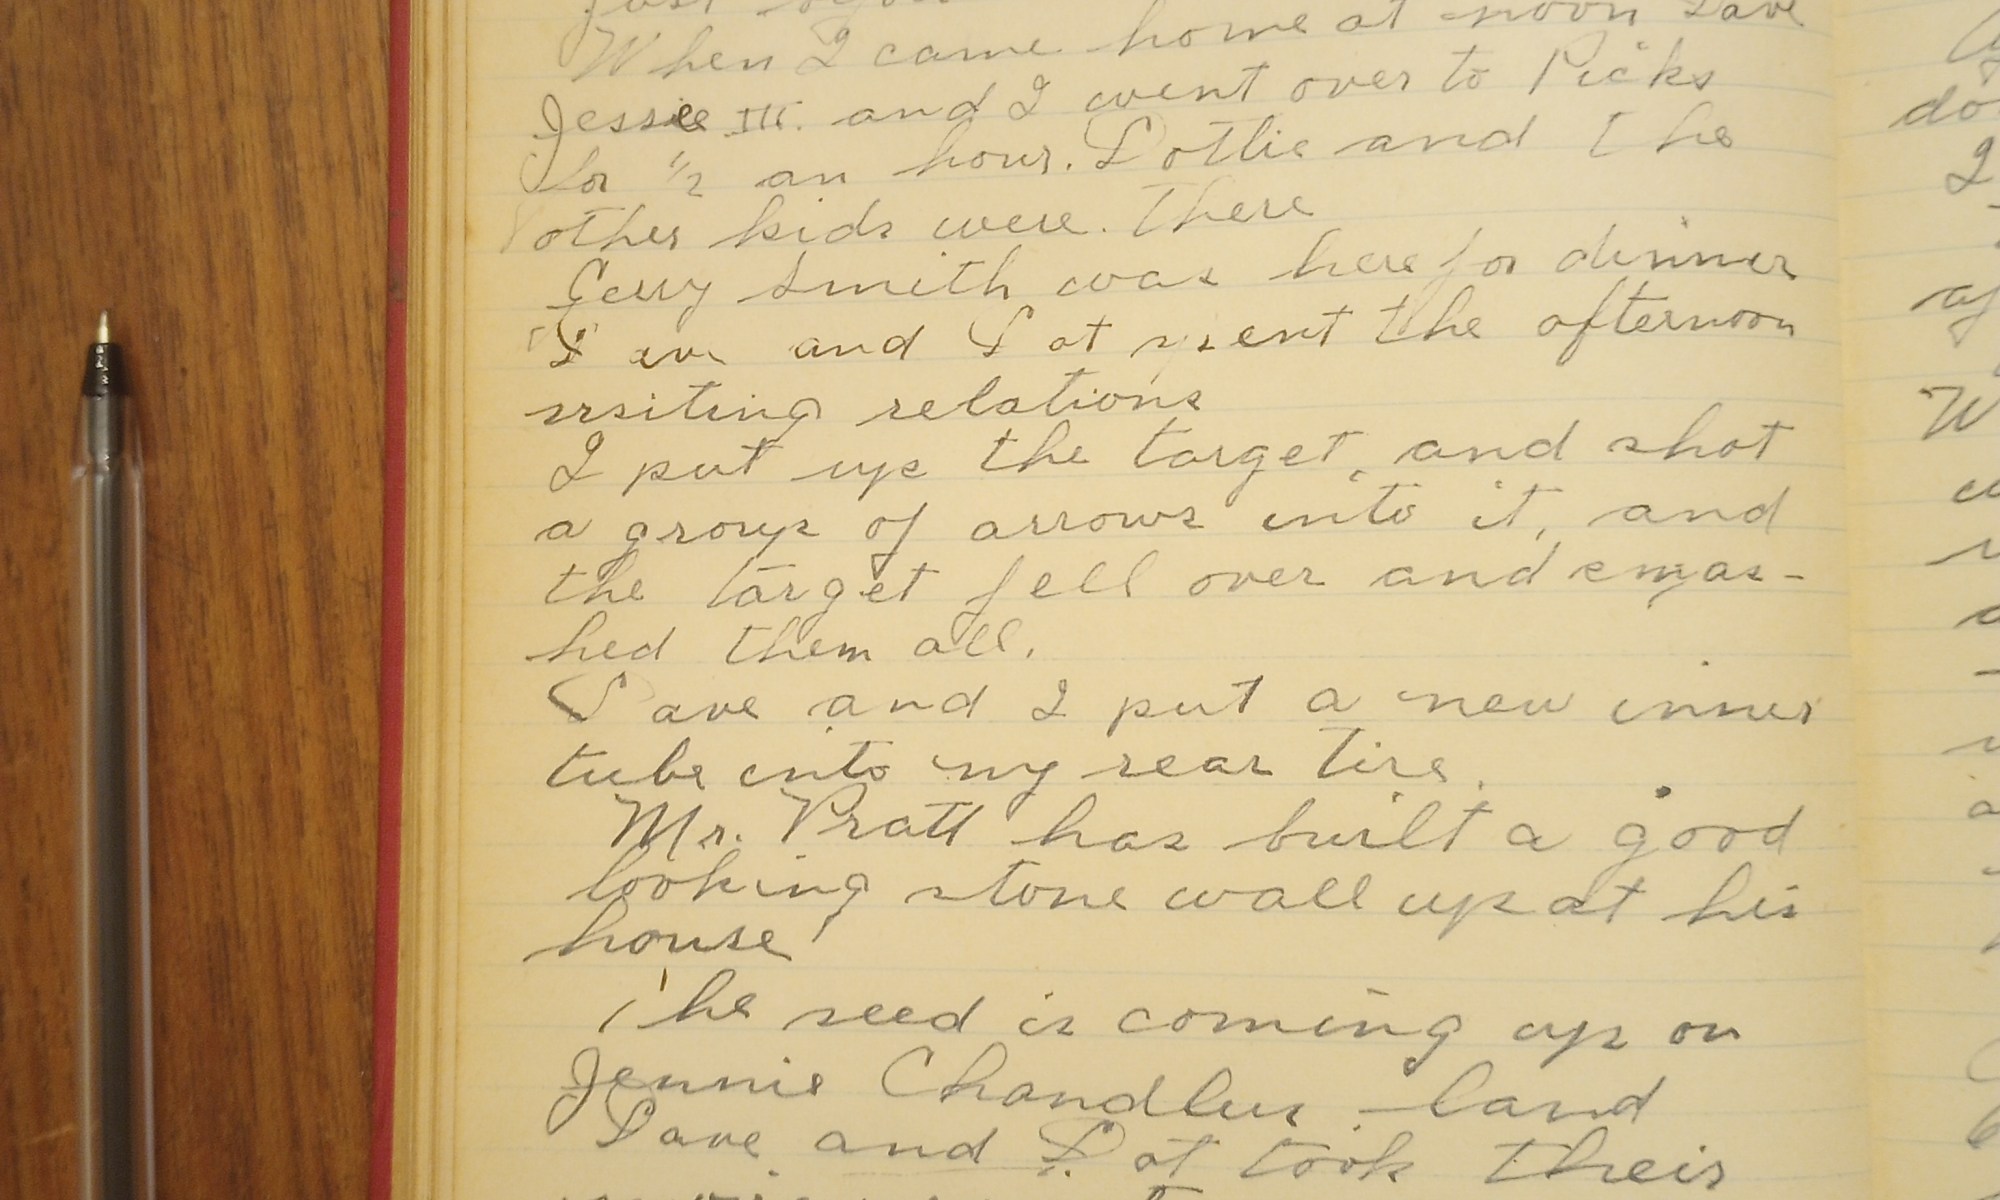 When I came home at noon Dave
Jessie III. and I went over to Picks
for 1/2 an hour. Dottie and the
other kids were. There
Gerry Smith was here for dinner
Dave and Dot spent the afternoon
visiting relations
I put up the target, and shot
a group of arrows into it, and
the target fell over and smas-
hed them all.
Dave and I put a new inner
tube into my rear tire.
Mr. Pratt has built a good
looking stone wall up at his
house
The seed is coming up on
Jennie Chandlers land
Dave and Dot took their
do
I
W